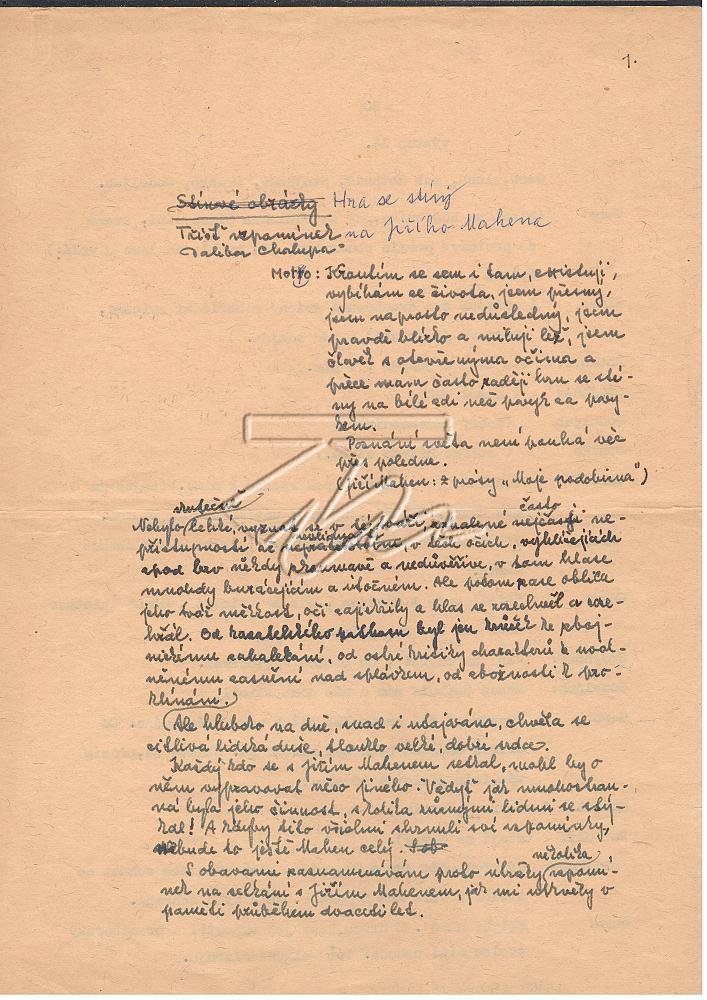 1.
Stínové obrázky Hra se stíny
Tříšť vzpomínek na Jiřího Mahena
Dalibor Chalupa
Motto: Kroutím se sem i tam, existuji,
vybíhám ze života, jsem přesný,
jsem naprosto nedůsledný, jsem
pravdě blízko a miluji lež, jsem
člověk s otevřenýma očima a
přece mám často raději hru se stí-
ny na bílé zdi než povyk za povy-
kem.
Poznání světa není pouhá věc
přes poledne.
(Jiří Mahen: z prósy „Moje podobizna")
skutečně často
Nebylo lehké, vyznat se v té tváři, zahalené nejčastěji ne-
přístupností až, v těch očích, vyhlížejících
zpod brv někdy zkoumavě a nedůvěřivě, v tom hlase
mnohdy burácejícím a útočném. Ale potom zase oblila
jeho tvář měkkost, oči zajiskřily a hlas se rozechvěl a roze-
hrál. Od kazatelského pathosu byl jen krůček ke zboj-
nickému zahalekání, od ostré kritiky charakterů k
zasnění nad splávkem, od zbožnosti k pro-
klínání.
Ale hluboko na dně, snad i utajována, chvěla se
citlivá lidská duše, tlouklo velké, dobré srdce.
Každý kdo se s Jiřím Mahenem setkal, mohl by o
něm vypravovat něco jiného. Vždyť jak mnohostran-
ná byla jeho činnost, s kolika různými lidmi se stý-
kal! A kdyby tito všichni shrnuli své vzpomínky,
nebude to ještě Mahen celý.
několika
S obavami zaznamenávám proto útržky vzpomí-
nek na setkání s Jiřím Mahenem, jak mi utkvěly v
paměti průběhem dvaceti let.